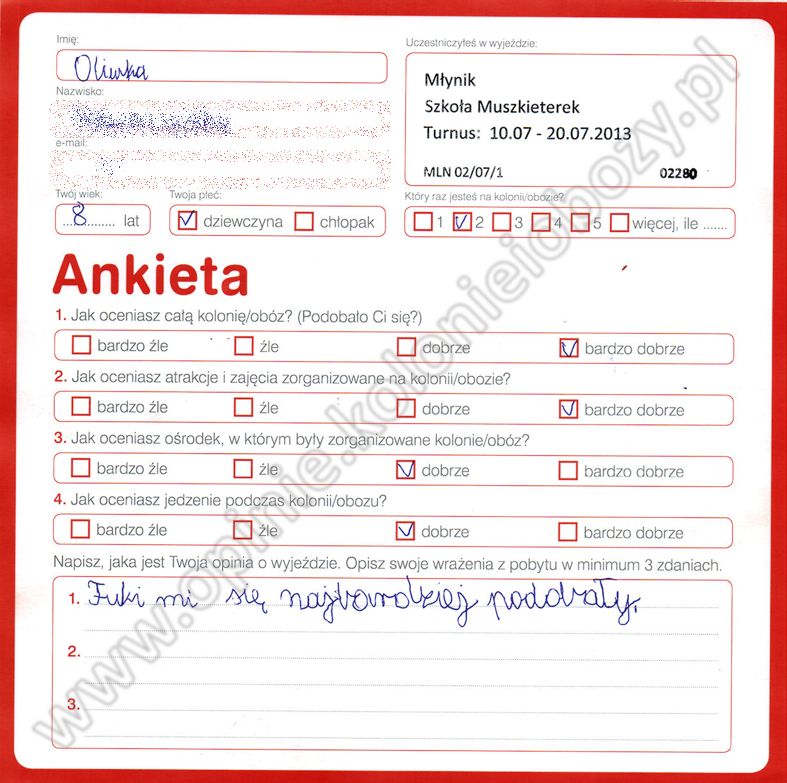 Imię:
Oliwka
Uczestniczyłeś w wyjeździe:
Młynik
Szkoła Muszkieterek
Turnus: 10.07 - 20.07.2013
MLN 02/07/1 02280
Nazwisko:
e-mail:
Twój wiek:
8 lat
Twoja płeć:
dziewczyna chłopak
Który raz jesteś na kolonii/obozie?
1 2 3 4 5 więcej, ile .......
Ankieta
1. Jak oceniasz całą kolonię/obóz? (Podobało Ci się?)
bardzo źle źle dobrze bardzo dobrze
2. Jak oceniasz atrakcje i zajęcia zorganizowane na kolonii/obozie?
bardzo źle źle dobrze bardzo dobrze
3. Jak oceniasz ośrodek, w którym były zorganizowane kolonie/obóz?
bardzo źle źle dobrze bardzo dobrze
4. Jak oceniasz jedzenie podczas kolonii/obozu?
bardzo źle źle dobrze bardzo dobrze
Napisz, jaka jest Twoja opinia o wyjeździe. Opisz swoje wrażenia z pobytu w minimum 3 zdaniach.
1. Fuki mi się najbardziej poddbały.
2.
3.
www.opinie.kolonieiobozy.pl